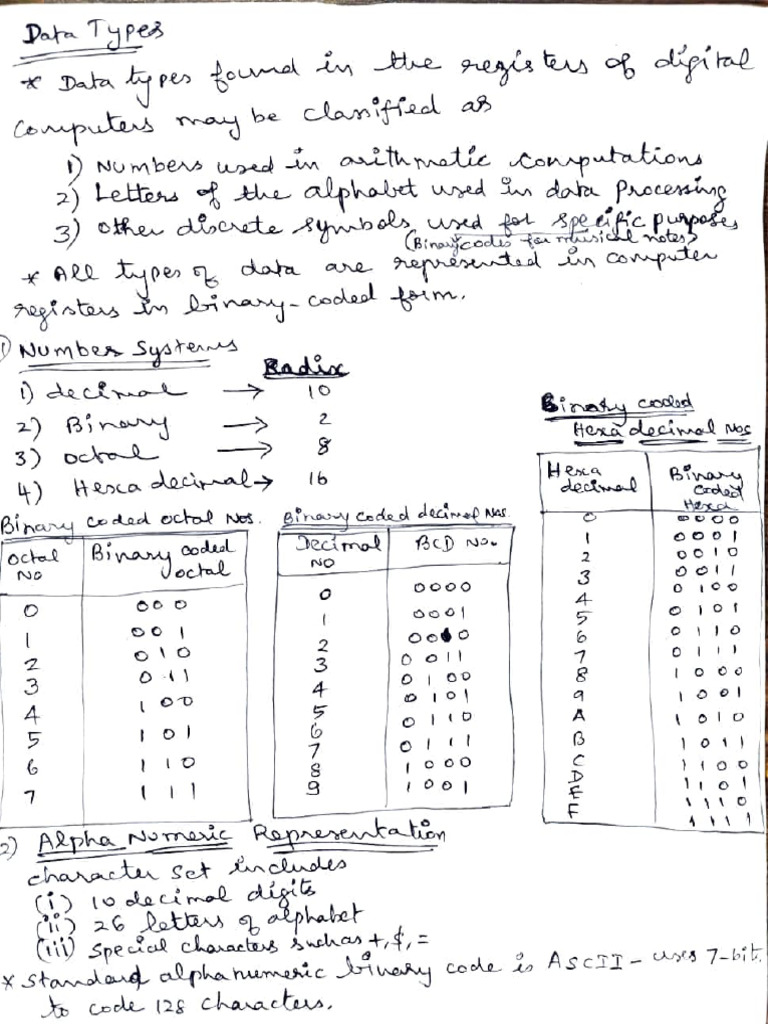 Data Types
* Data types found in the registers of digital
Computers may be classified as
1) Numbers used in arithmetic computations
2) Letters of the alphabet used in data processing
3) Other discrete symbols used for specific purposes
(Binary codes for musical notes)
* All types of data are represented in computer
registers in binary-coded form.
1) Number Systems
Radix
1) decimal → 10
2) Binary → 2
3) octal → 8
4) Hexa decimal → 16
Binary coded octal Nos.
Octal No Binary coded octal
0 000
1 001
2 010
3 011
4 100
5 101
6 110
7 111
Binary coded decimal Nos.
Decimal No BCD No.
0 0000
1 0001
2 0010
3 0011
4 0100
5 0101
6 0110
7 0111
8 1000
9 1001
Binary coded
Hexa decimal Nos
Hexa decimal Binary coded Hexa
0 0000
1 0001
2 0010
3 0011
4 0100
5 0101
6 0110
7 0111
8 1000
9 1001
A 1010
B 1011
C 1100
D 1101
E 1110
F 1111
2) Alpha Numeric Representation
character set includes
(i) 10 decimal digits
(ii) 26 letters of alphabet
(iii) special characters such as +, $, =
* Standard alphanumeric binary code is ASCII - uses 7-bit.
to code 128 characters.